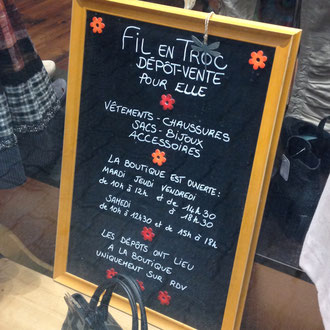 FIL EN TROC
DÉPÔT-VENTE
POUR ELLE
VÊTEMENTS - CHAUSSURES
SACS - BIJOUX
ACCESSOIRES
LA BOUTIQUE EST OUVERTE :
MARDI JEUDI VENDREDI
de 10h à 12h et de 14h30
à 18h30
SAMEDI
de 10h à 12h30 et de 15h à 18h
LES DÉPÔTS ONT LIEU
À LA BOUTIQUE
UNIQUEMENT SUR RDV